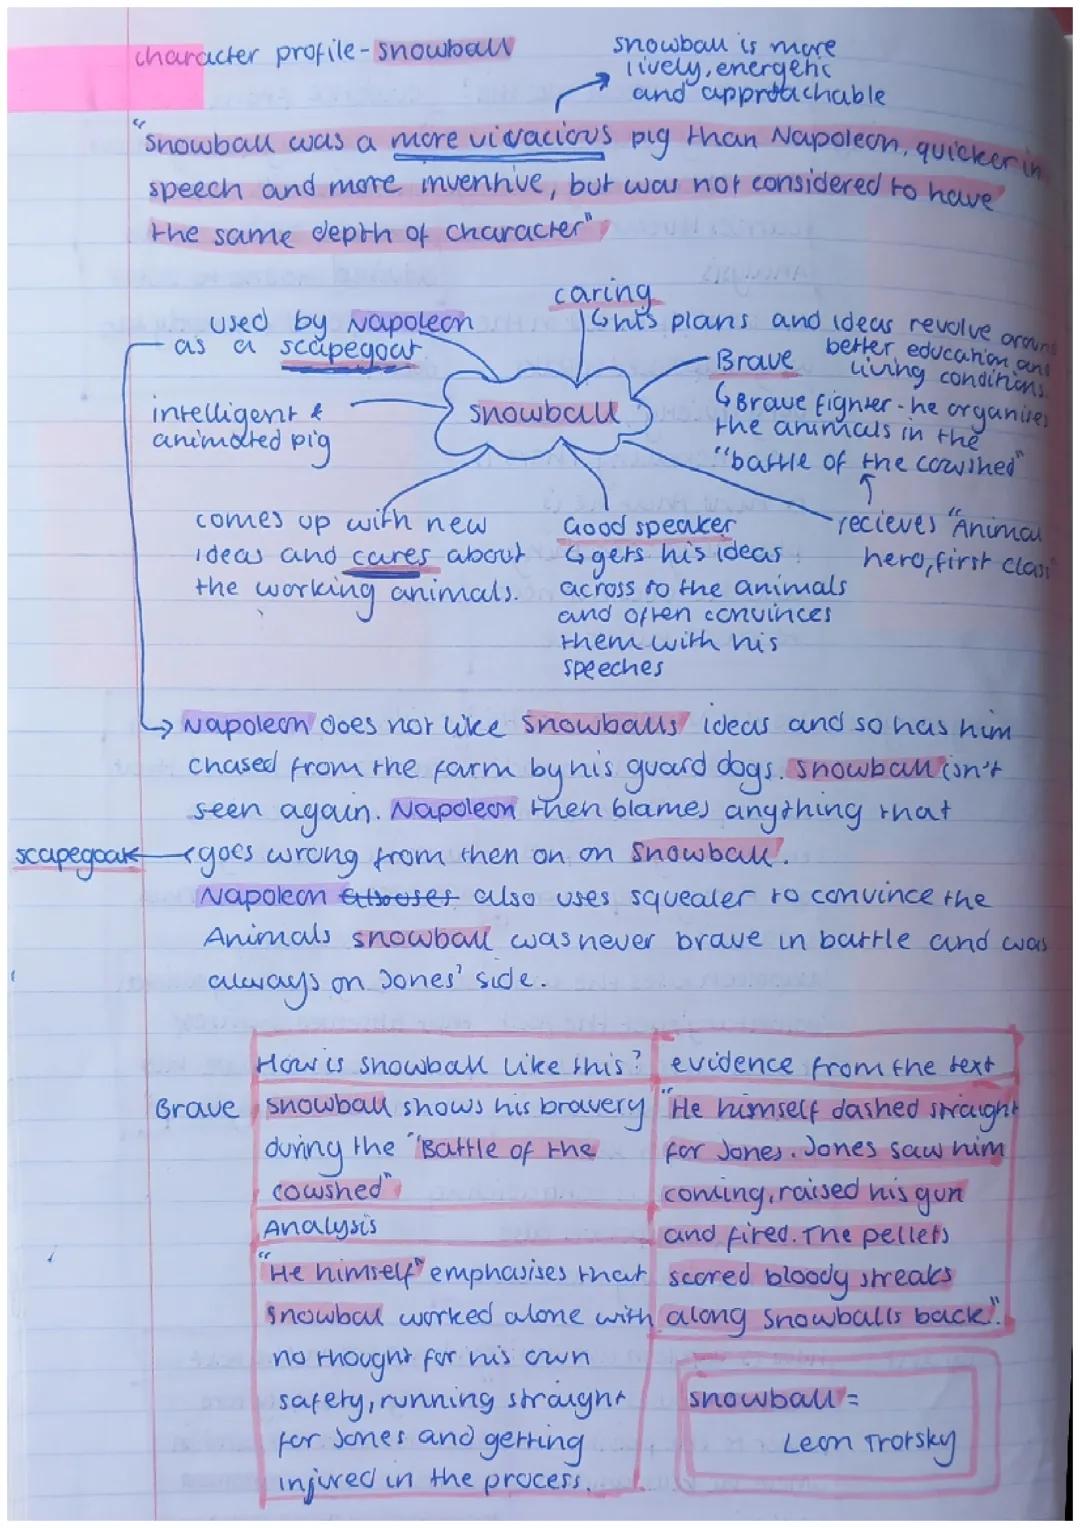 character profile - snowball
snowball is more
lively, energetic
and approachable
"Snowball was a more vivacious pig than Napoleon, quicker in
speech and more inventive, but was not considered to have
the same depth of character"
used by Napoleon
as a scapegoat
caring
↳ his plans and ideas revolve around
better education and
living conditions.
Brave
↳ Brave fighter - he organises
the animals in the
"battle of the cowshed"
snowball
intelligent &
animated pig
comes up with new
ideas and cares about
the working animals.
Good speaker
↳ gets his ideas
across to the animals
and often convinces
them with his
speeches
recieves "Animal
hero, first class"
Napoleon does not like Snowballs ideas and so has him
chased from the farm by his guard dogs. Snowball isn't
seen again. Napoleon then blames anything that
scapegoat
goes wrong from then on on Snowball.
Napoleon also uses squealer to convince the
Animals snowball was never brave in battle and was
always on Jones' side.
How is snowball like this?
evidence from the text
Brave
Snowball shows his bravery
during the "Battle of the
cowshed"
"He himself dashed straight
for Jones. Jones saw him
coming, raised his gun
and fired. The pellets
scored bloody streaks
along Snowballs back".
Analysis
"He himself" emphasises that
Snowball worked alone with
no thought for his own
safety, running straight
for Jones and getting
injured in the process.
snowball =
Leon Trotsky